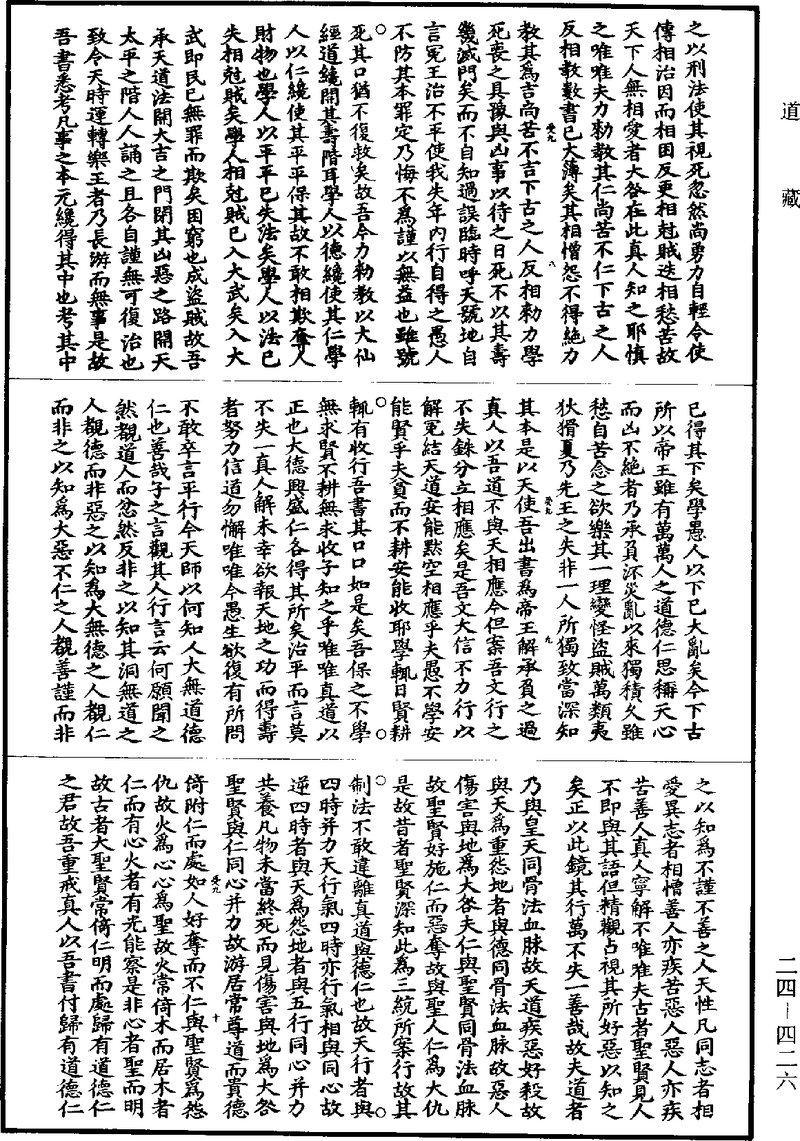 道藏
之以刑法使其視死忽然尚勇力自輕令使
傳相治因而相困反更相尅賊迭相愁苦故
天下人無相愛者大咎在此真人知之耶慎
之唯唯夫力勑教其仁尚苦不仁下古之人
反相教數書已大薄矣其相憎怨不得絶力
受九 八
教其爲吉尚苦不吉下古之人反相勑力學
死喪之具豫與凶事以待之日死不以其壽
幾滅門矣而不自知過誤臨時呼天號地自
言冤王治不平使我失年内行自得之愚人
不防其本罪定乃悔不爲謹以無益也雖號
死其口猶不復救矣故吾今力勑教以大仙
經道纔開其壽階耳學人以德纔使其仁學
人以仁纔使其平平保其故不敢相欺奪人
財物也學人以平平已失法矣學人以法已
失相尅賊矣學人相尅賊已入大武矣入大
武即民已無罪而欺矣困窮也成盗賊故吾
承天道法開大吉之門閉其凶惡之路開天
太平之階人人誦之且各自謹無可復治也
致令天時運轉樂王者乃長游而無事是故
吾書悉考凡事之本元纔得其中也考其中
已得其下矣學愚人以下已大亂矣今下古
所以帝王雖有萬萬人之道德仁思稱天心
而凶不絶者乃承負𣵠災亂以來獨積久雖
愁自苦念之欲樂其一理變怪盗賊萬類夷
狄猾夏乃先王之失非一人所獨致當深知
受九 九
其本是以天使吾出書爲帝王解承負之過
真人以吾道不與天相應今但案吾文行之
不失銖分立相應矣是吾文大信不力行以
解冤結天道安能黙空相應乎夫愚不學安
能賢乎夫貧而不耕安能收耶學輒日賢耕
輒有收行吾書其口口如是矣吾保之不學
無求賢不耕無求收子知之乎唯唯真道以
正也大德興盛仁各得其所矣治平而言莫
不失一真人解未幸欲報天地之功而得壽
者努力信道勿懈唯唯今愚生欲復有所問
不敢卒言平行今天師以何知人大無道德
仁也善哉子之言觀其人行言云何願聞之
然觀道人而忽然反非之以知其洞無道之
人觀德而非惡之以知爲大無德之人觀仁
而非之以知爲大惡不仁之人觀善謹而非
之以知爲不謹不善之人天性凡同志者相
愛異志者相憎善人亦疾苦惡人惡人亦疾
苦善人真人寧解不唯唯夫古者聖賢見人
不即與其語但精觀占視其所好惡以知之
矣正以此鏡其行萬不失一善哉故夫道者
乃與皇天同骨法血脉故天道疾惡好殺故
與天爲重怨地者與德同骨法血脉故惡人
傷害與地爲大咎夫仁與聖賢同骨法血脉
故聖賢好施仁而惡奪故與聖人仁爲大仇
是故昔者聖賢深知此爲三統所案行故其
制法不敢違離真道與德仁也故天行者與
四時并力天行氣四時亦行氣相與同心故
逆四時者與天爲怨地者與五行同心并力
共養凡物未當終死而見傷害與地爲大咎
聖賢與仁同心并力故游居常尊道而貴德
受九 十
倚附仁而處如人好奪而不仁與聖賢爲怨
仇故火爲心心爲聖故火常倚木而居木者
仁而有心火者有光能察是非心者聖而明
故古者大聖賢常倚仁明而處歸有道德仁
之君故吾重戒真人以吾書付歸有道德仁
二四－四二六